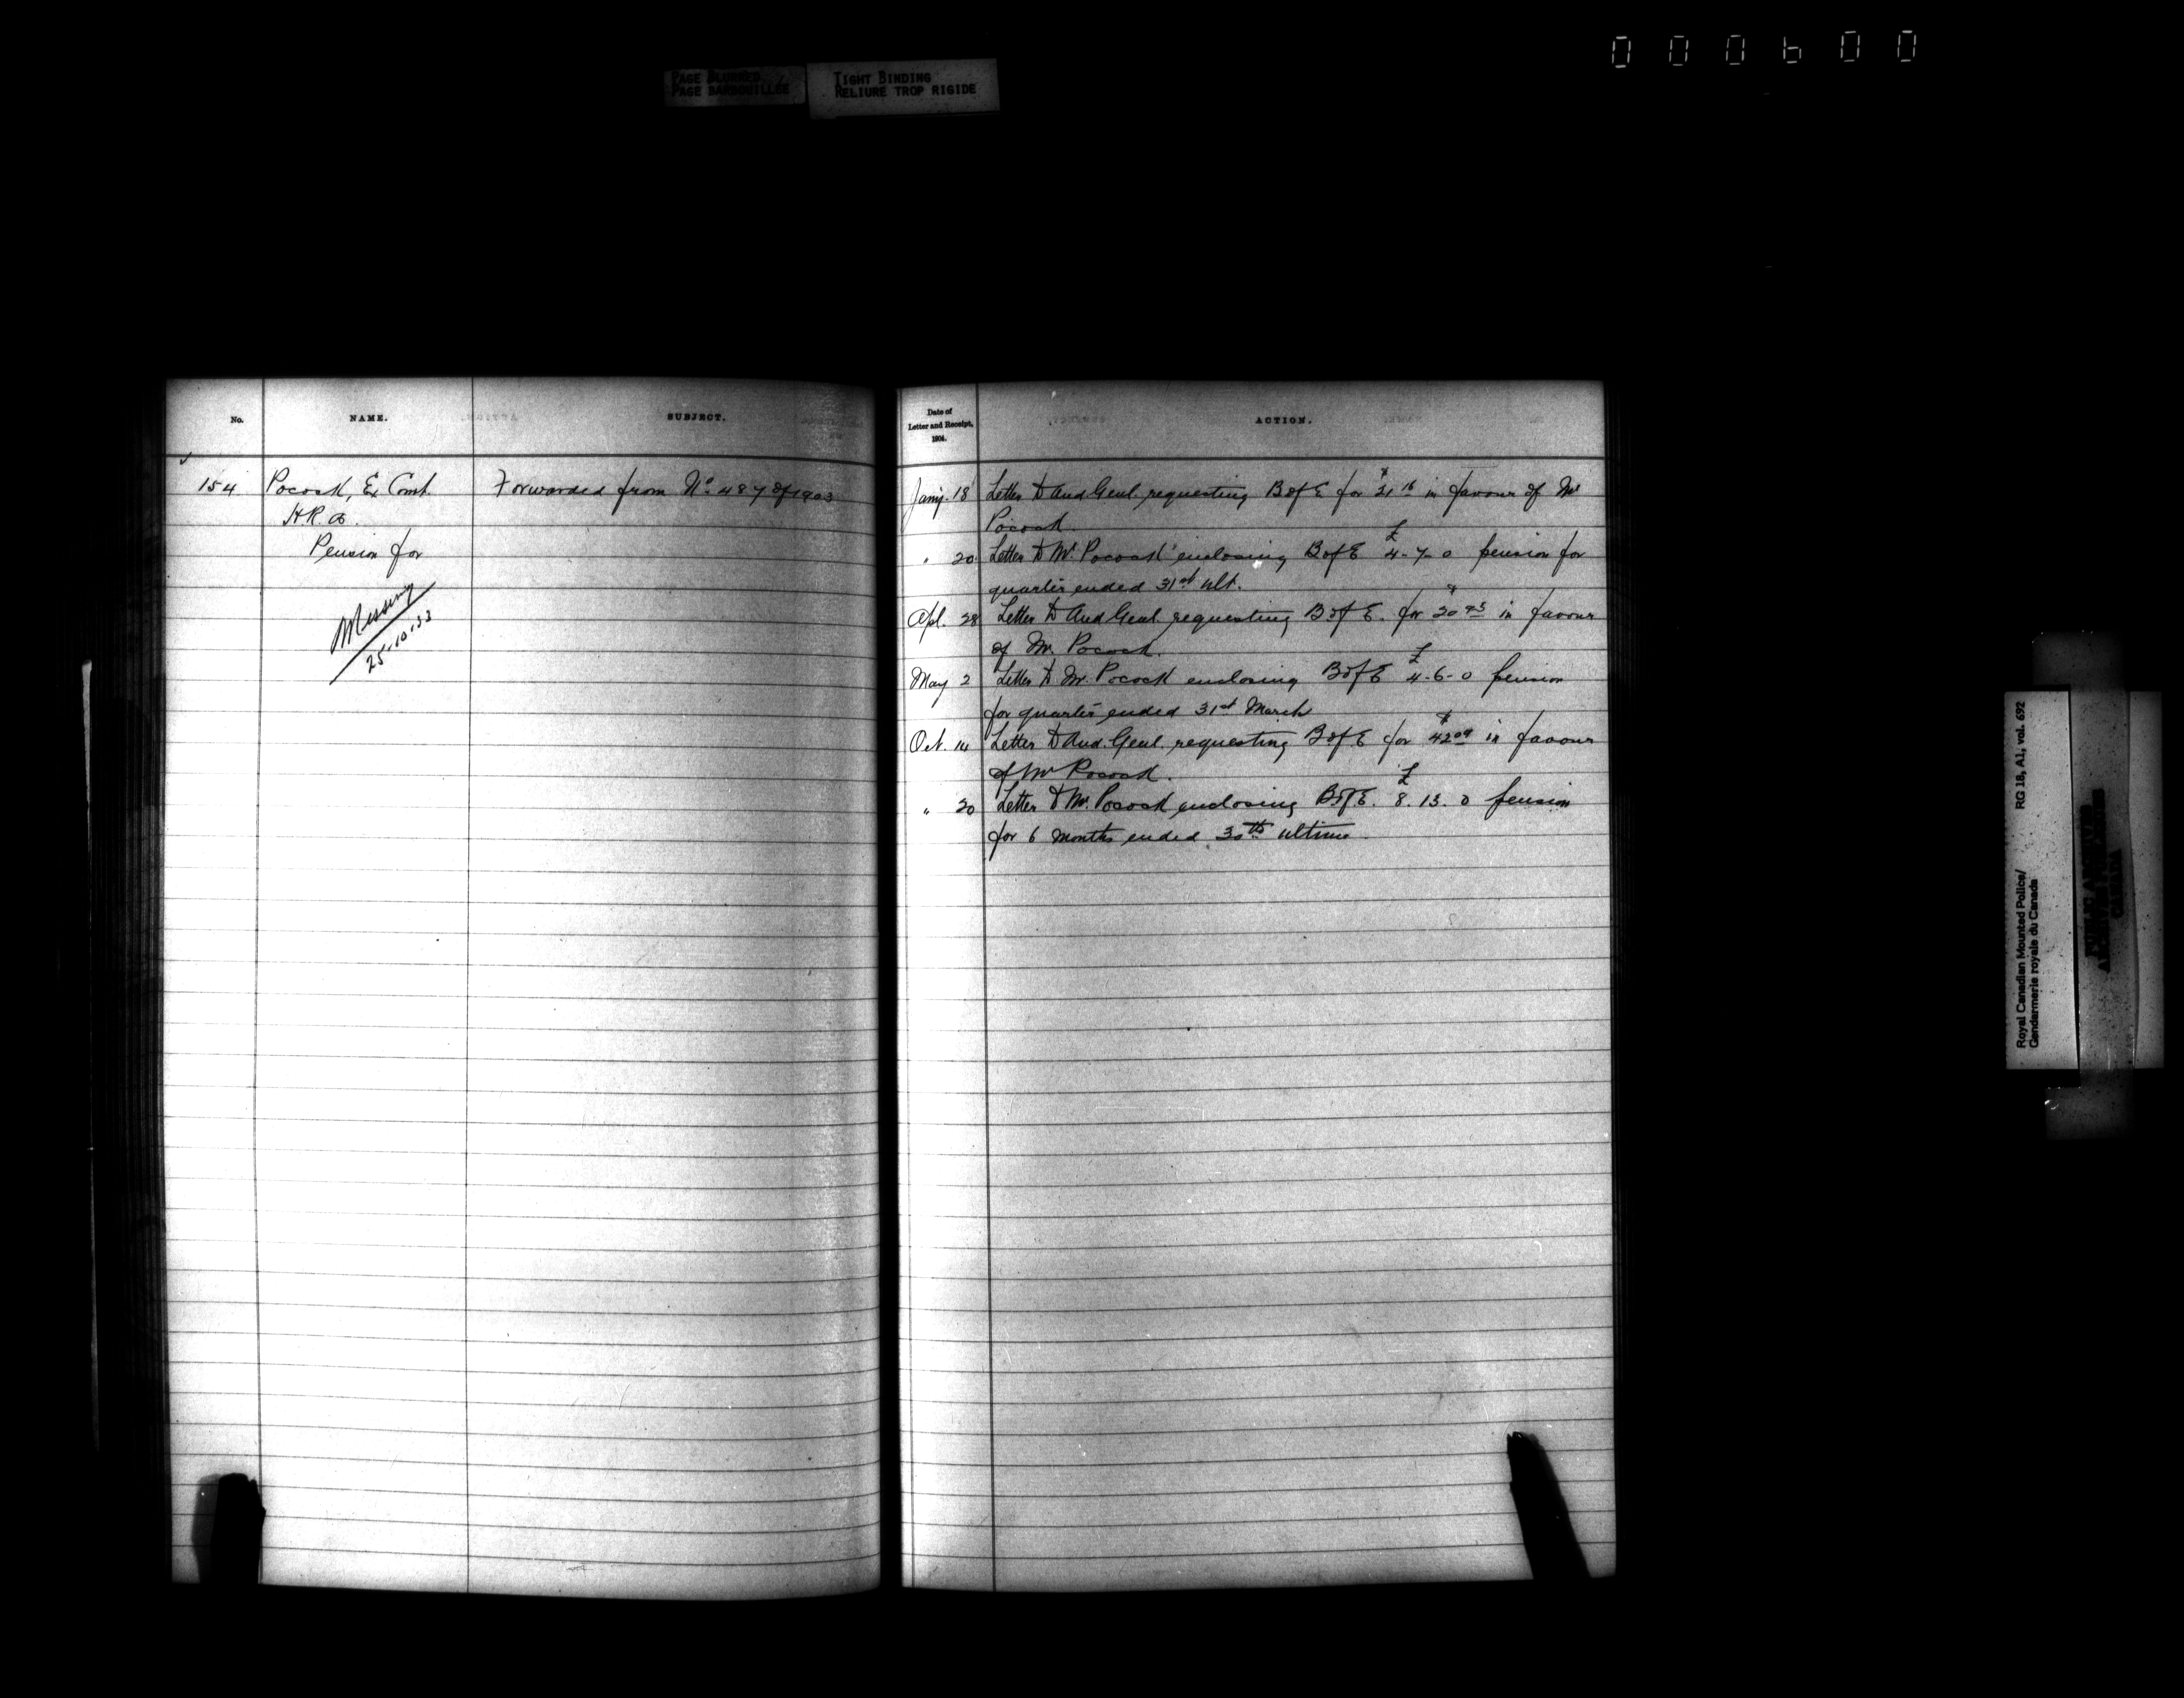 000600
PAGE BLURRED
PAGE BARBOUILLÉE
TIGHT BINDING
RELIURE TROP RIGIDE
No.
NAME.
SUBJECT.
154
Pocock, Ex Const.
H.R.A.
Pension for
Missing
25-10-33
Forwarded from No. 487 of 1903
Date of
Letter and Receipt,
1904.
ACTION.
Jany. 18 Letter to Aud. Genl. requesting B of E for $21.16 in favour of Mr
Pocock.
" 20 Letter to Mr Pocock enclosing B of E £4-7-0 pension for
quarter ended 31st ult.
Apl. 28 Letter to Aud Genl requesting B of E. for $20.93 in favour
of Mr. Pocock.
May 2 Letter to Mr. Pocock enclosing B of E £4-6-0 pension
for quarter ended 31st March
Oct. 14 Letter to Aud. Genl. requesting B of E for $42.09 in favour
of Mr Pocock.
" 20 Letter to Mr. Pocock enclosing B of E. £8.13.0 pension
for 6 months ended 30th ultimo.
Royal Canadian Mounted Police/
Gendarmerie royale du Canada
RG 18, A1, vol. 692
PUBLIC ARCHIVES
ARCHIVES PUBLIQUES
CANADA